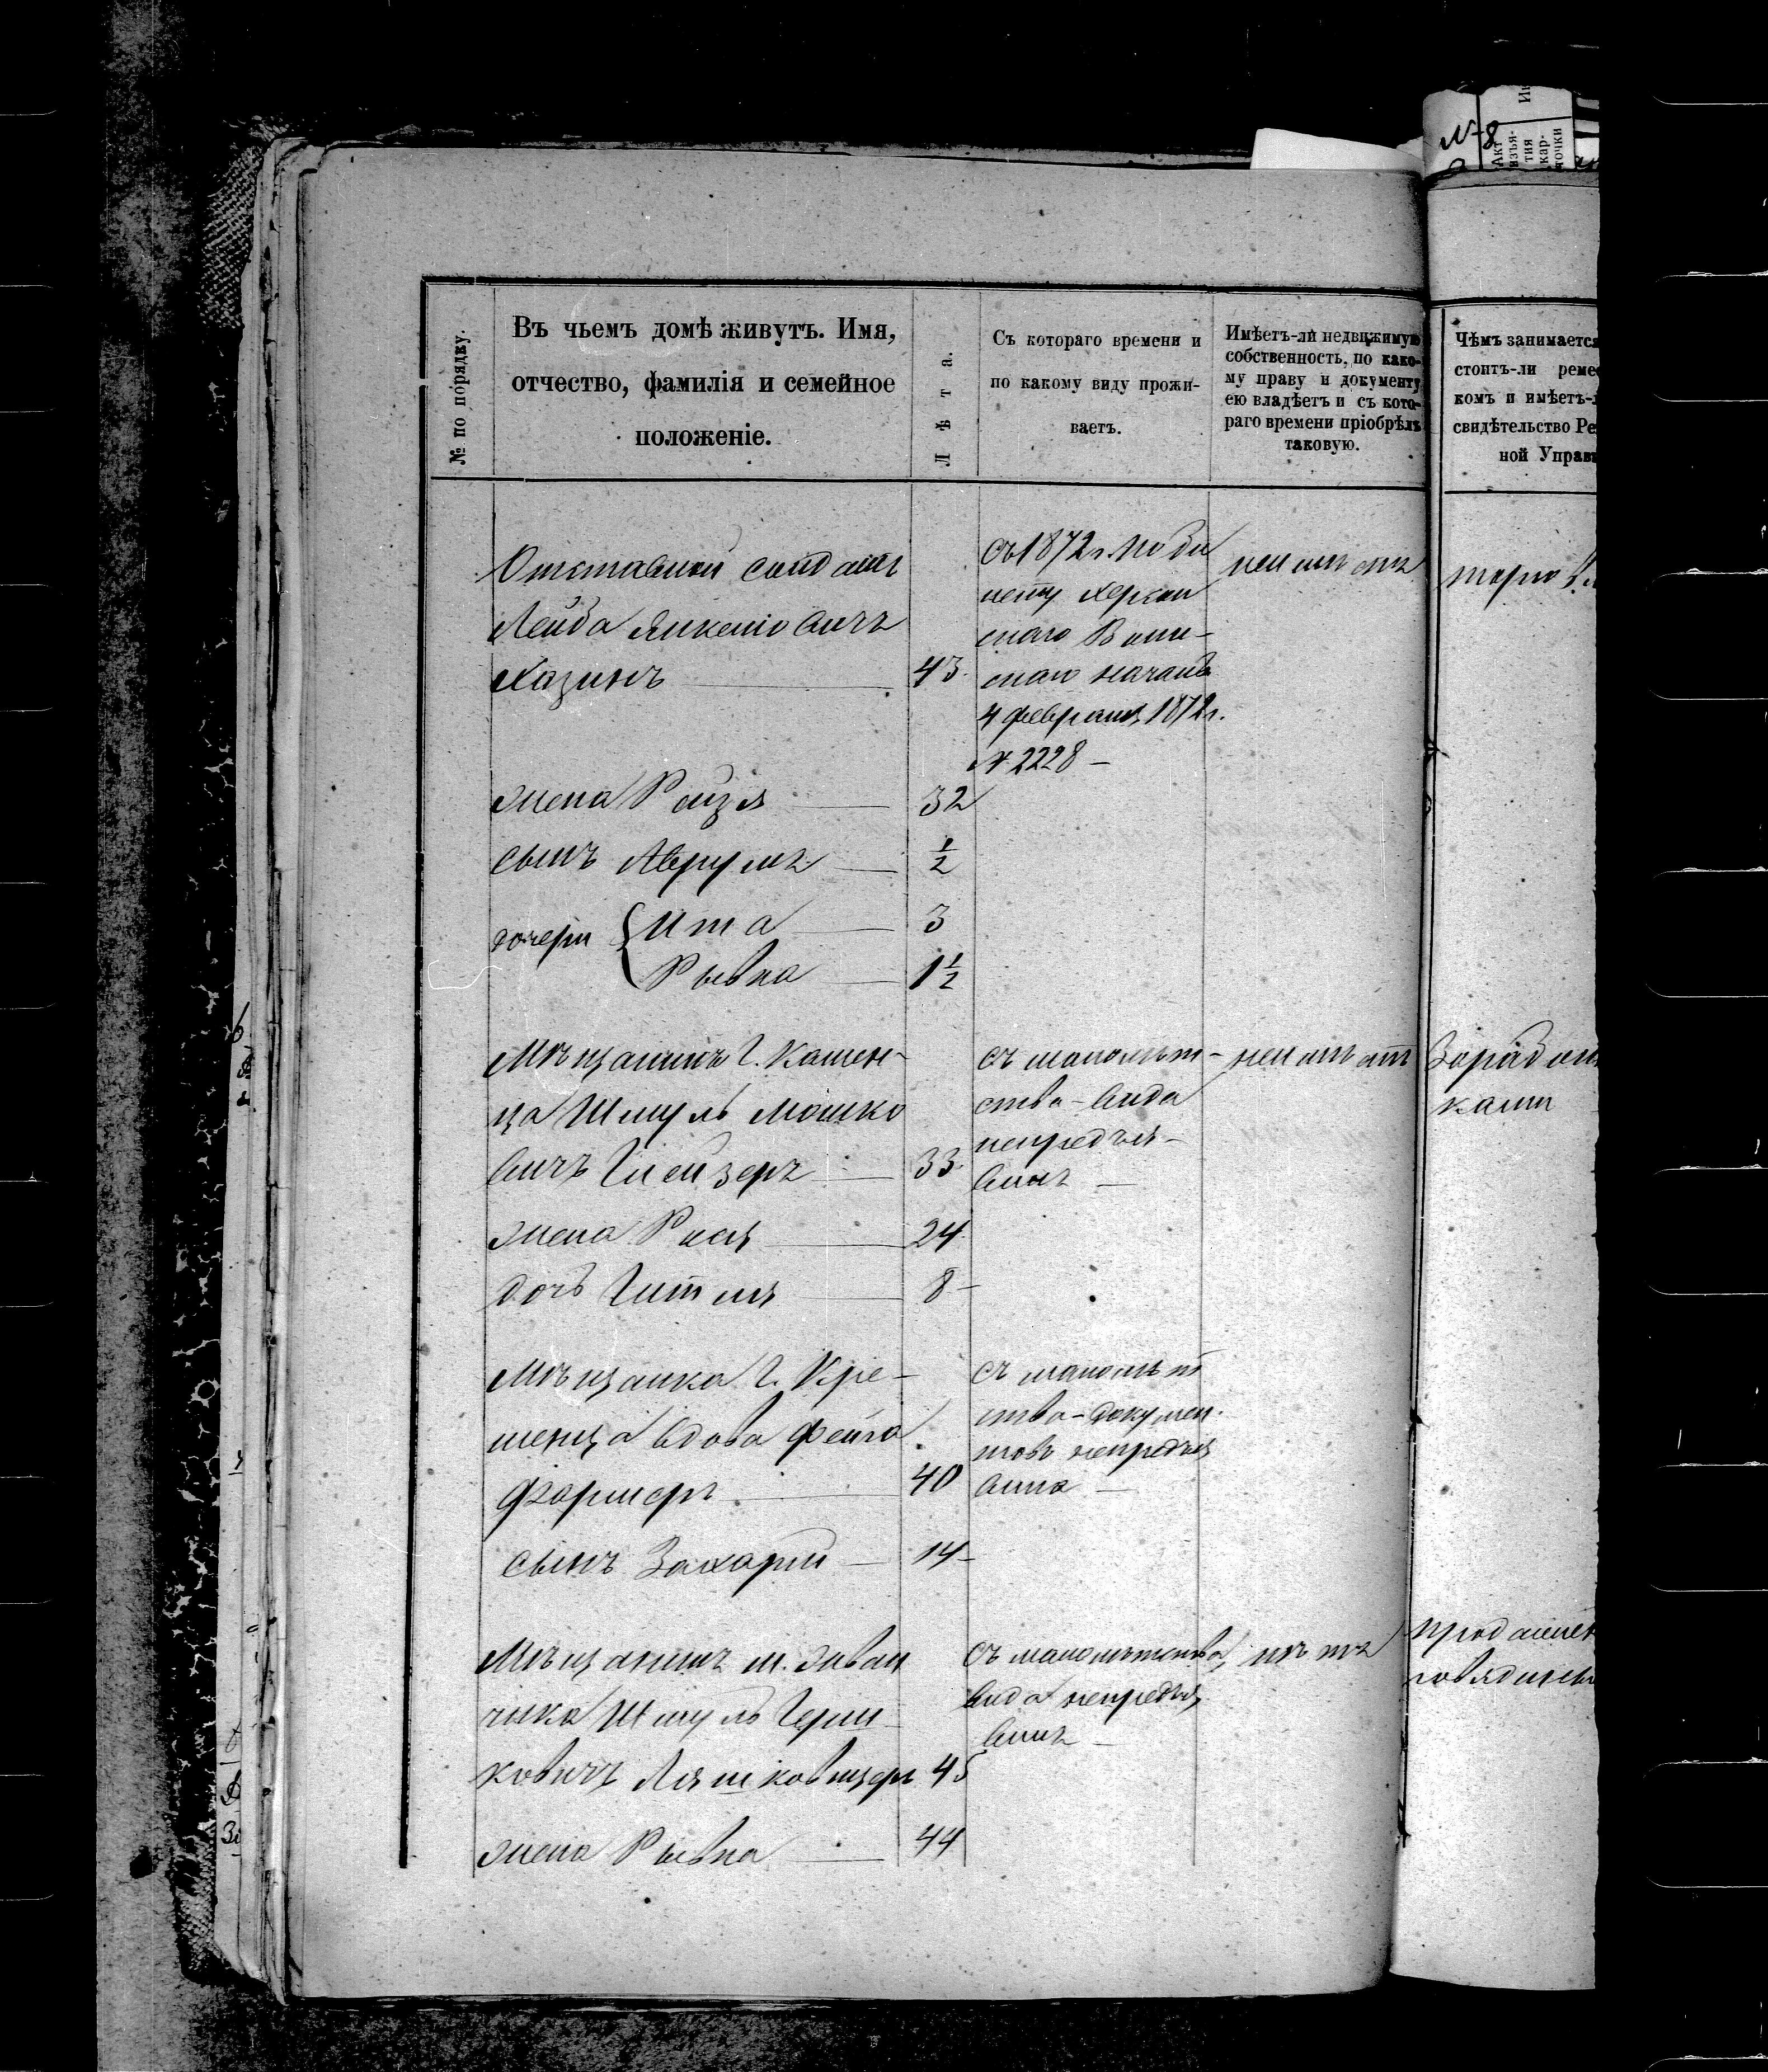 № по порядку.
Въ чьемъ домѣ живутъ. Имя,
отчество, фамилія и семейное
положеніе.
Лѣта.
Съ котораго времени и
по какому виду прожи-
ваетъ.
Имѣетъ-ли недвижимую
собственность, по како-
му праву и документу
ею владѣетъ и съ кото-
раго времени пріобрѣлъ
таковую.
Чѣмъ занимается
стоитъ-ли
комъ и имѣетъ-
свидѣтельство
ной
Акт
взъя-
тия
кар-
точки
№ 8
Отставной солдатъ
Лейба Янкеліовичъ
Хазинъ 43
съ 1872 г. по би
лету Херсон
скаго Воин-
скаго началь
4 февраля 1872 г.
№ 2228 –
неимѣетъ
жена Рейзя 32
сынъ Аврумъ ½
дочери Ита 3
Рывка 1½
Мѣщанинъ г. Камен-
ца Шмуль Мошко
вичъ Глейзеръ 33
съ малолѣт-
ства – вида
непредъя-
вилъ –
неимѣетъ
жена Рися 24
дочь Гитля 8 –
Мѣщанка г. Кре-
менца вдова Фейга
Формеръ 40
съ малолѣт
ства – докумен-
товъ непредъя
вила –
сынъ Захарій 14 –
Мѣщанинъ м. Зван
чика Шмуль Герш
ковичъ Ляшковицеръ 45
съ малолѣтства,
вида непредъя
вилъ –
нѣтъ
жена Рывка 44